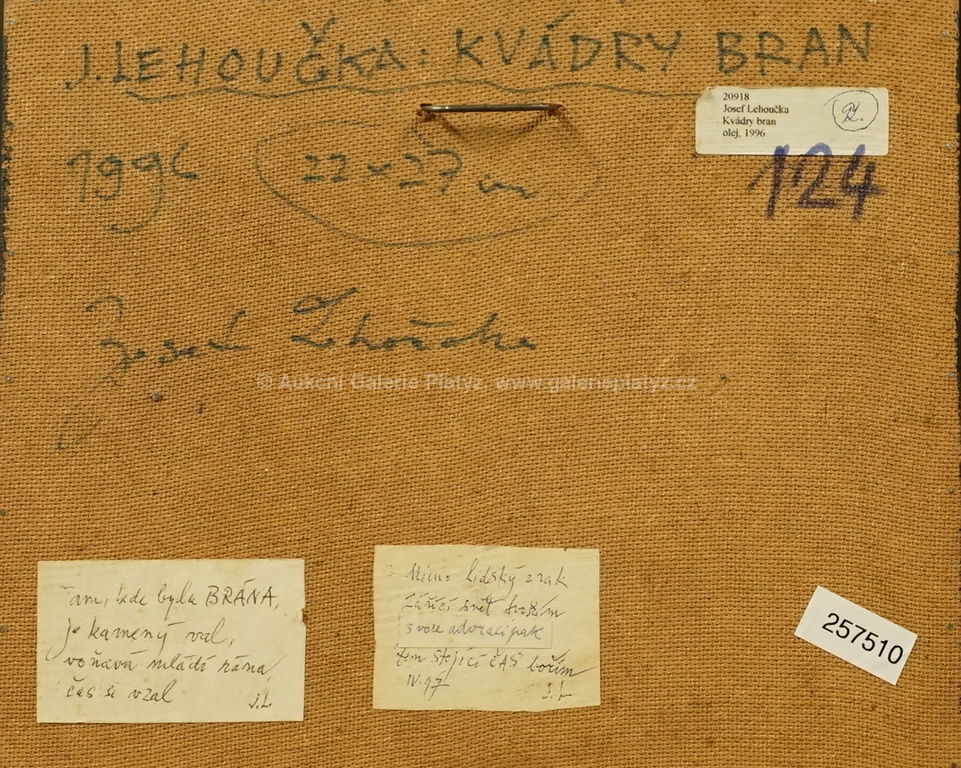 J. LEHOUČKA: KVÁDRY BRAN
20918
Josef Lehoučka
Kvádry bran
olej, 1996
1996
22 x 27 cm
124
Josef Lehoučka
© Aukční Galerie Platýz, www.galerieplatyz.cz
Tam, kde byla BRÁNA,
je kamený val,
voňavá mládí rána,
čas si vzal
J.L
Mimo lidský zrak
Zářící svět tvořím
svoce adoraci pak
ten Stojící ČAS bořím
IV. 97
J.L
257510